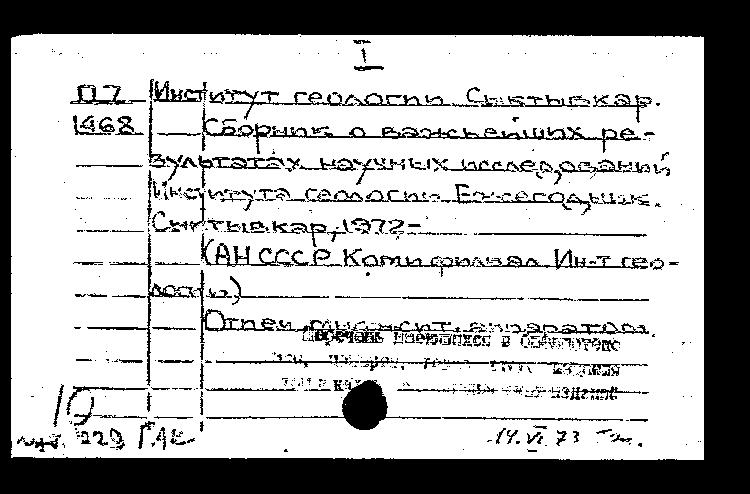 I
П7 Институт геологии. Сыктывкар.
1468 Сборник о важнейших ре-
зультатах научных исследований
Института геологии. Ежегодник.
Сыктывкар, 1972-
(АН СССР. Коми филиал. Ин-т гео-
логии)
Отпеч. множит. аппаратом.
Перечень имеющихся в библиотеке
изданий
10
229 ГАК 14.VI.73